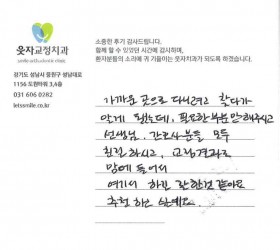 웃자교정치과
smile orthodontic clinic
경기도 성남시 분당구 성남대로
1156 도원타워 3,4층
031 606 0282
letssmile.co.kr
소중한 후기 감사드립니다.
함께 할 수 있었던 시간에 감사하며,
환자분들의 소리에 귀 기울이는 웃자치과가 되도록 하겠습니다.
가까운 곳으로 다니려고 찾다가
알게 됐는데, 필요한 부분만 해주시고
선생님, 간호사분들 모두
친절하시고, 교정결과도
맘에 들어서
여기서 하길 잘한것 같아요
추천 하는 안예요.